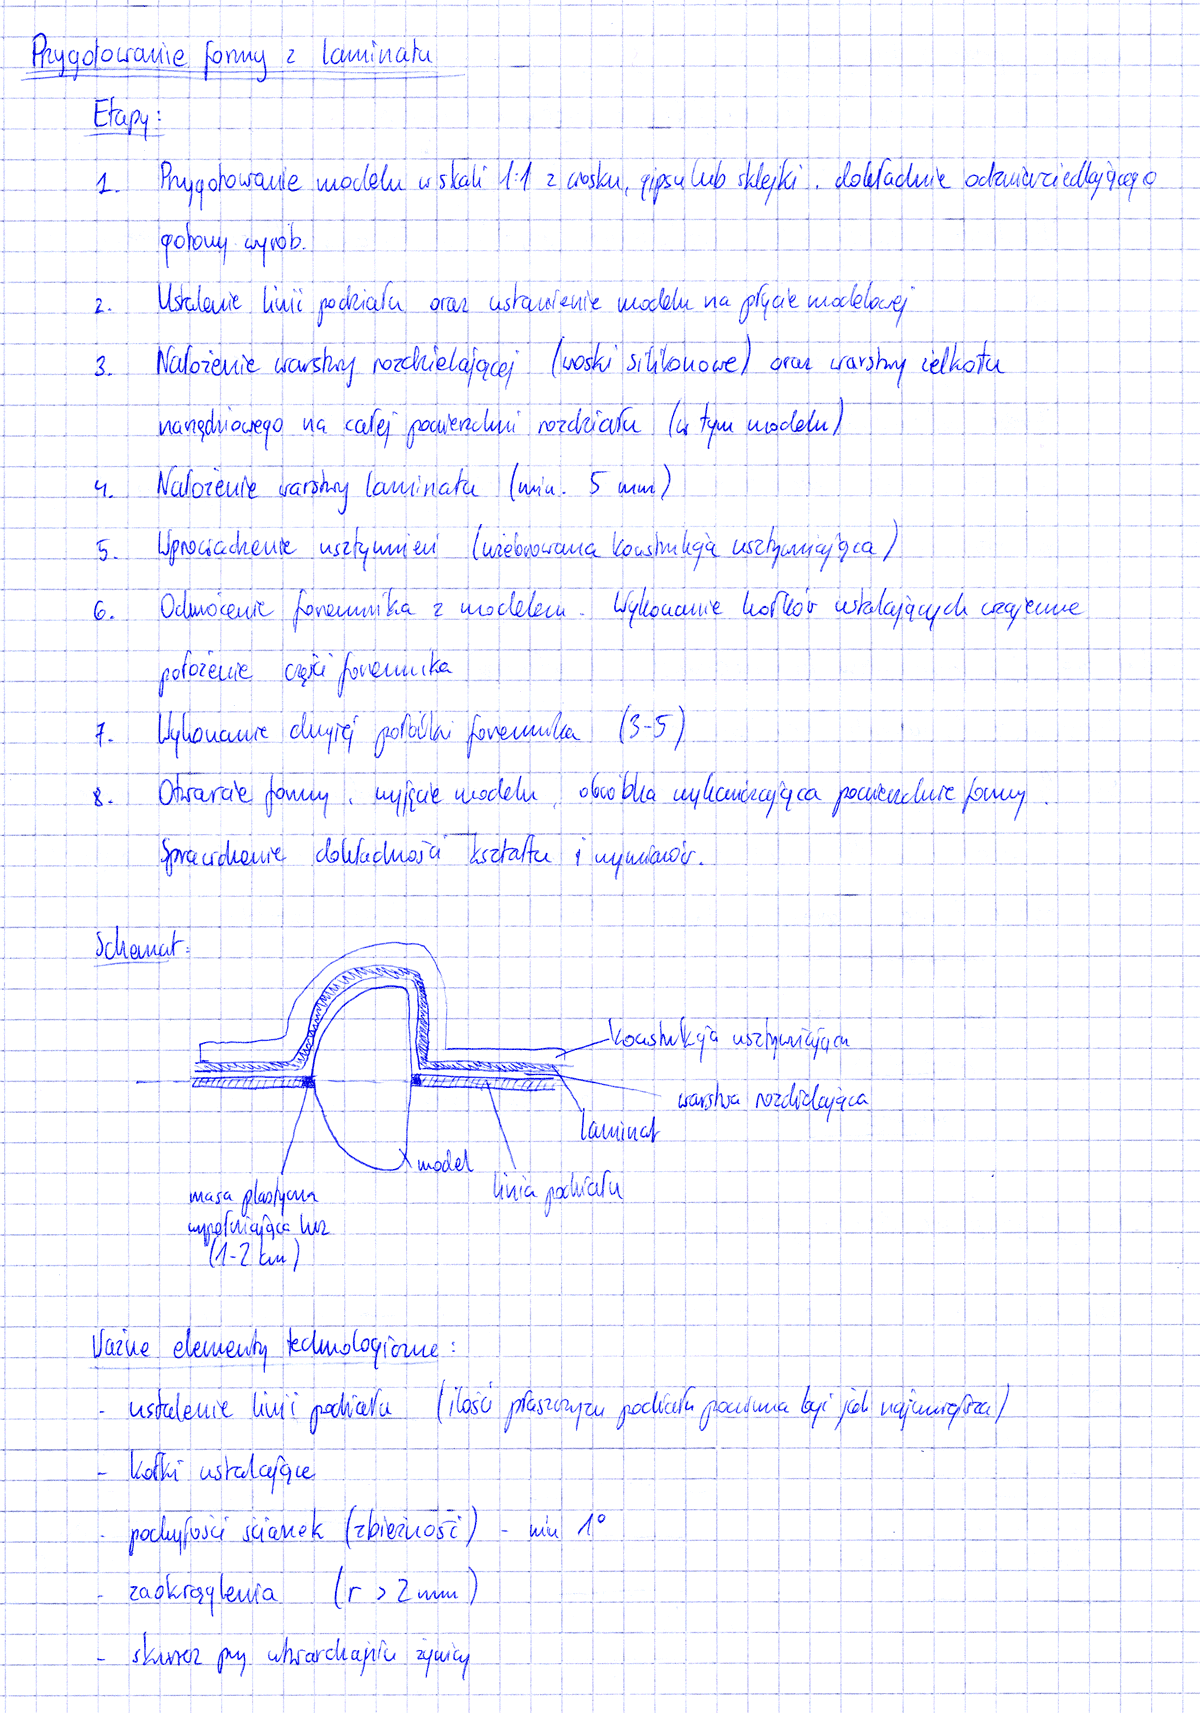 Przygotowanie formy z laminatu
Etapy:
1. Przygotowanie modelu w skali 1:1 z wosku, gipsu lub sklejki. dokładnie odzwierciedlającego
gotowy wyrób.
2. Ustalenie linii podziału oraz ustawienie modelu na płycie modelowej
3. Nałożenie warstwy rozdzielającej (woski silikonowe) oraz warstwy żelkotu
narzędziowego na całej powierzchni rozdziału (w tym modelu)
4. Nałożenie warstwy laminatu (min. 5 mm)
5. Wprowadzenie usztywnień (użebrowana konstrukcja usztywniająca)
6. Odwrócenie foremnika z modelem. Wykonanie kołków ustalających wzajemne
położenie części foremnika
7. Wykonanie drugiej połówki foremnika (3-5)
8. Otwarcie formy, wyjęcie modelu, obróbka wykańczająca powierzchnie formy.
Sprawdzenie dokładności kształtu i wymiarów.
Schemat:
konstrukcja usztywniająca
warstwa rozdzielająca
laminat
model
linia podziału
masa plastyczna
wypełniająca luz
(1-2 cm)
Ważne elementy technologiczne:
- ustalenie linii podziału (ilość płaszczyzn podziału powinna być jak najmniejsza)
- kołki ustalające
- pochyłości ścianek (zbieżność) - min 1°
- zaokrąglenia (r > 2 mm)
- skurcz przy utwardzaniu żywicy